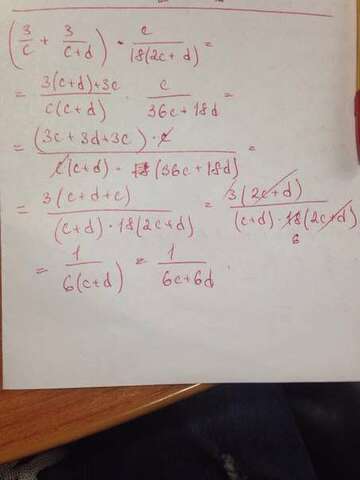 (3/c + 3/(c+d)) · c/(18(2c+d)) =
= (3(c+d)+3c)/(c(c+d)) · c/(36c+18d) =
= ((3c+3d+3c)·c)/(c(c+d)·(36c+18d)) =
= 3(c+d+c)/((c+d)·18(2c+d)) = 3(2c+d)/((c+d)·18(2c+d))
6
= 1/(6(c+d)) = 1/(6c+6d).